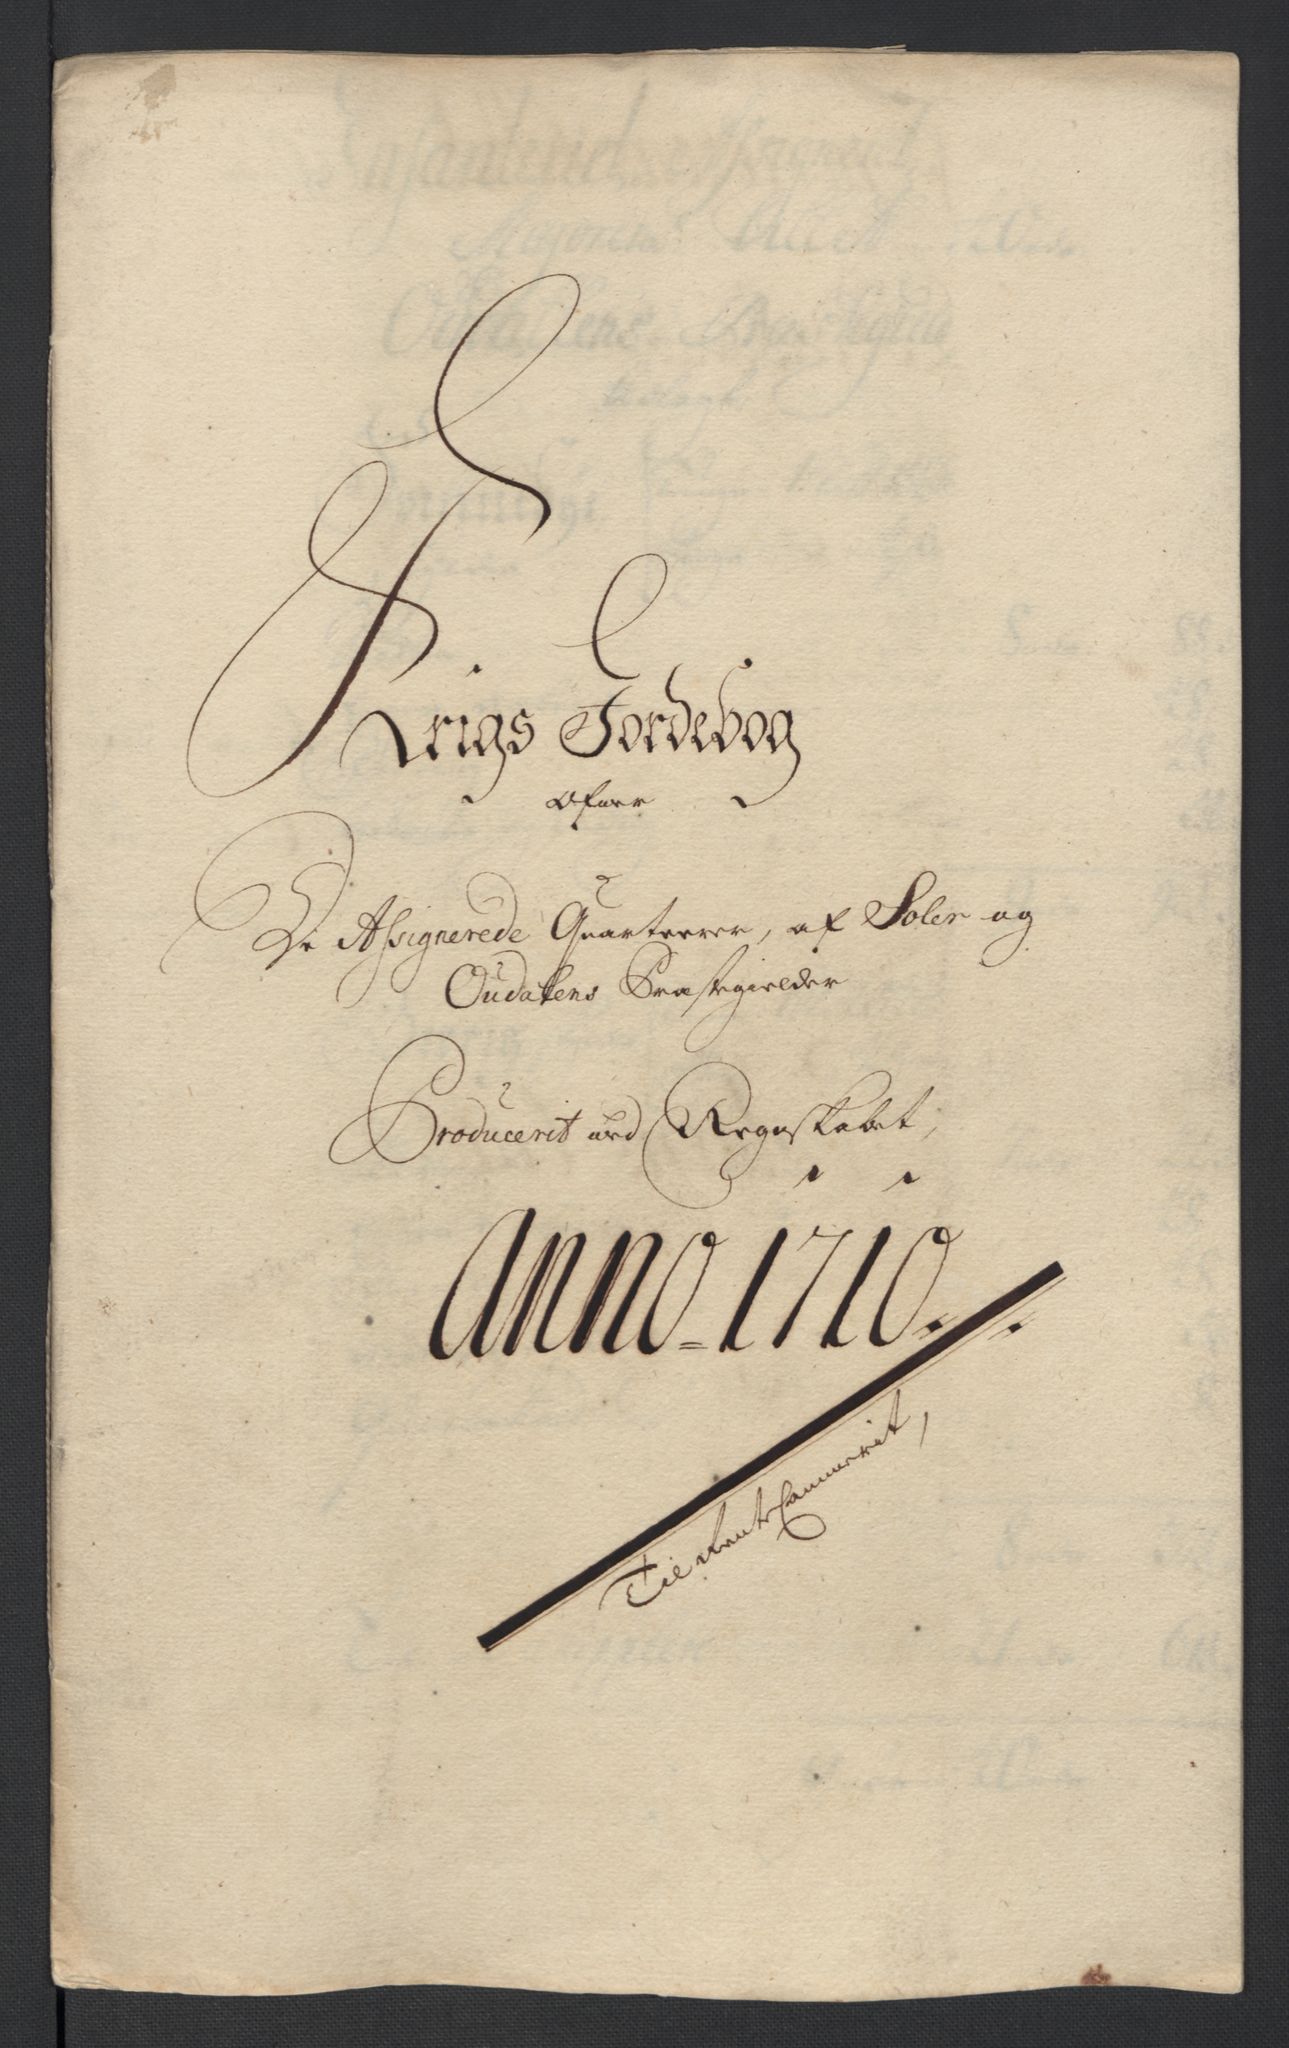 Krigs Jordebog
Ofver
De Assignerede Quarterer, af Soler og
Oudalens Præstegielder
Producerit ved Regnskabet,
Anno 1710.
Til Rente Cammerit,